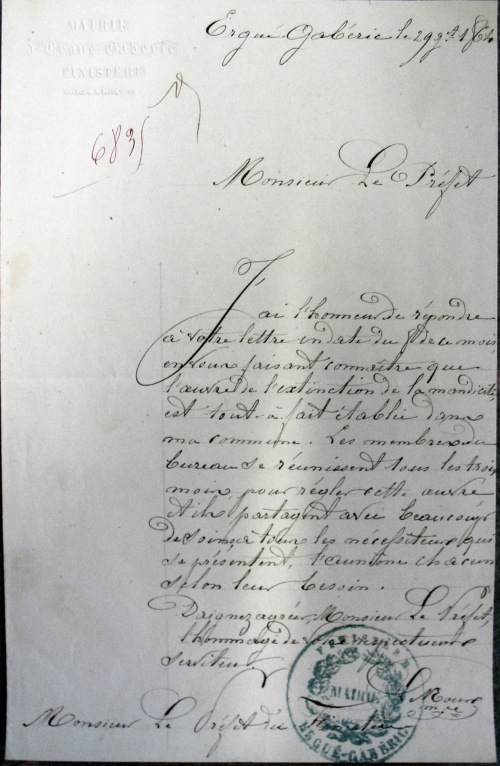 MAIRIE
d'Ergué Gabéric
FINISTÈRE
Ergué Gabéric le 29 9bre 1864
6835
Monsieur Le Préfet
J'ai l'honneur de répondre
à votre lettre en date du 8 de ce mois
en vous faisant connaître que
l'œuvre de l'extinction de la mandicité
est tout-à-fait établie dans
ma commune. Les membres du
bureau se réunissent tous les trois
mois, pour régler cette œuvre
et ils partagent avec beaucoup
de soins à tous les nécessiteux qui
se présentent, l'aumône chacun
selon leur besoin.
Daignez agréer, Monsieur Le Préfet,
l'hommage de
serviteur
Le Maire
FINISTERE
MAIRIE
ERGUÉ-GABERIC
Monsieur Le Préfet du Finistère